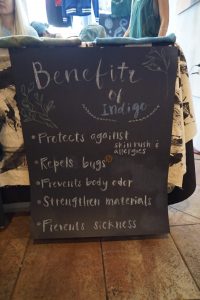 Benefitz
of
Indigo
• Protects against
skin rash &
allergies
• Repels bugs
• Prevents body odor
• Strengthen materials
• Prevents sickness